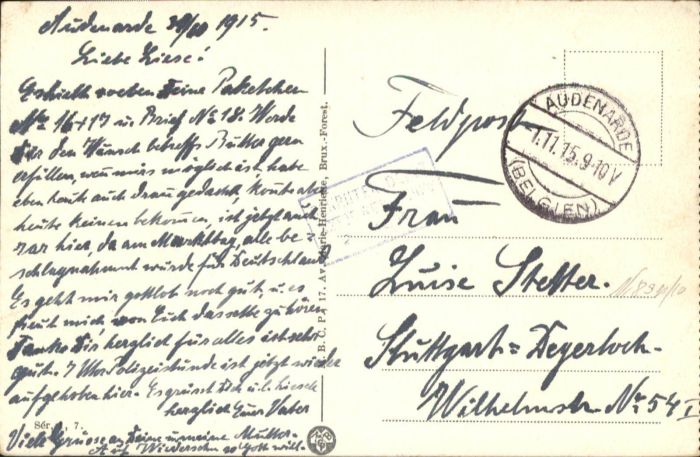 Audenarde 30/10 1915.
Liebe Liese!
Erhielt soeben Deine Paketchen
No 16+17 u. Brief No 18. Werde
Dir den Wunsch betreffs Butter gern
erfüllen wenn mir möglich ist, habe
eben heute auch daran gedacht, konnte aber
heute keinen bekommen, ist jetzt auch
rar hier, da am Markttag alle be-
schlagnahmt wurde für Deutschland
Es geht mir gottlob noch gut, u. es
freut mich, von Euch dasselbe zu hören
Danke Dir herzlich für alles ist sehr
gut. 7 Uhr Polizeistunde ist jetzt wieder
aufgehoben hier. Es grüsst Dich u.
herzlich Euer Vater
Viele Grüsse an Deine u. meine Mutter.
Auf Wiedersehn so Gott will.
Sér. 7.
B. C. P. 17, Av. Marie-Henriette, Brux.-Forest.
Feldpost
AUDENARDE
1.11.15.9-10V
(BELGIEN)
Frau
Luise Stetter.
Stuttgart=Degerloch-
Wilhelmstr. No 54 I